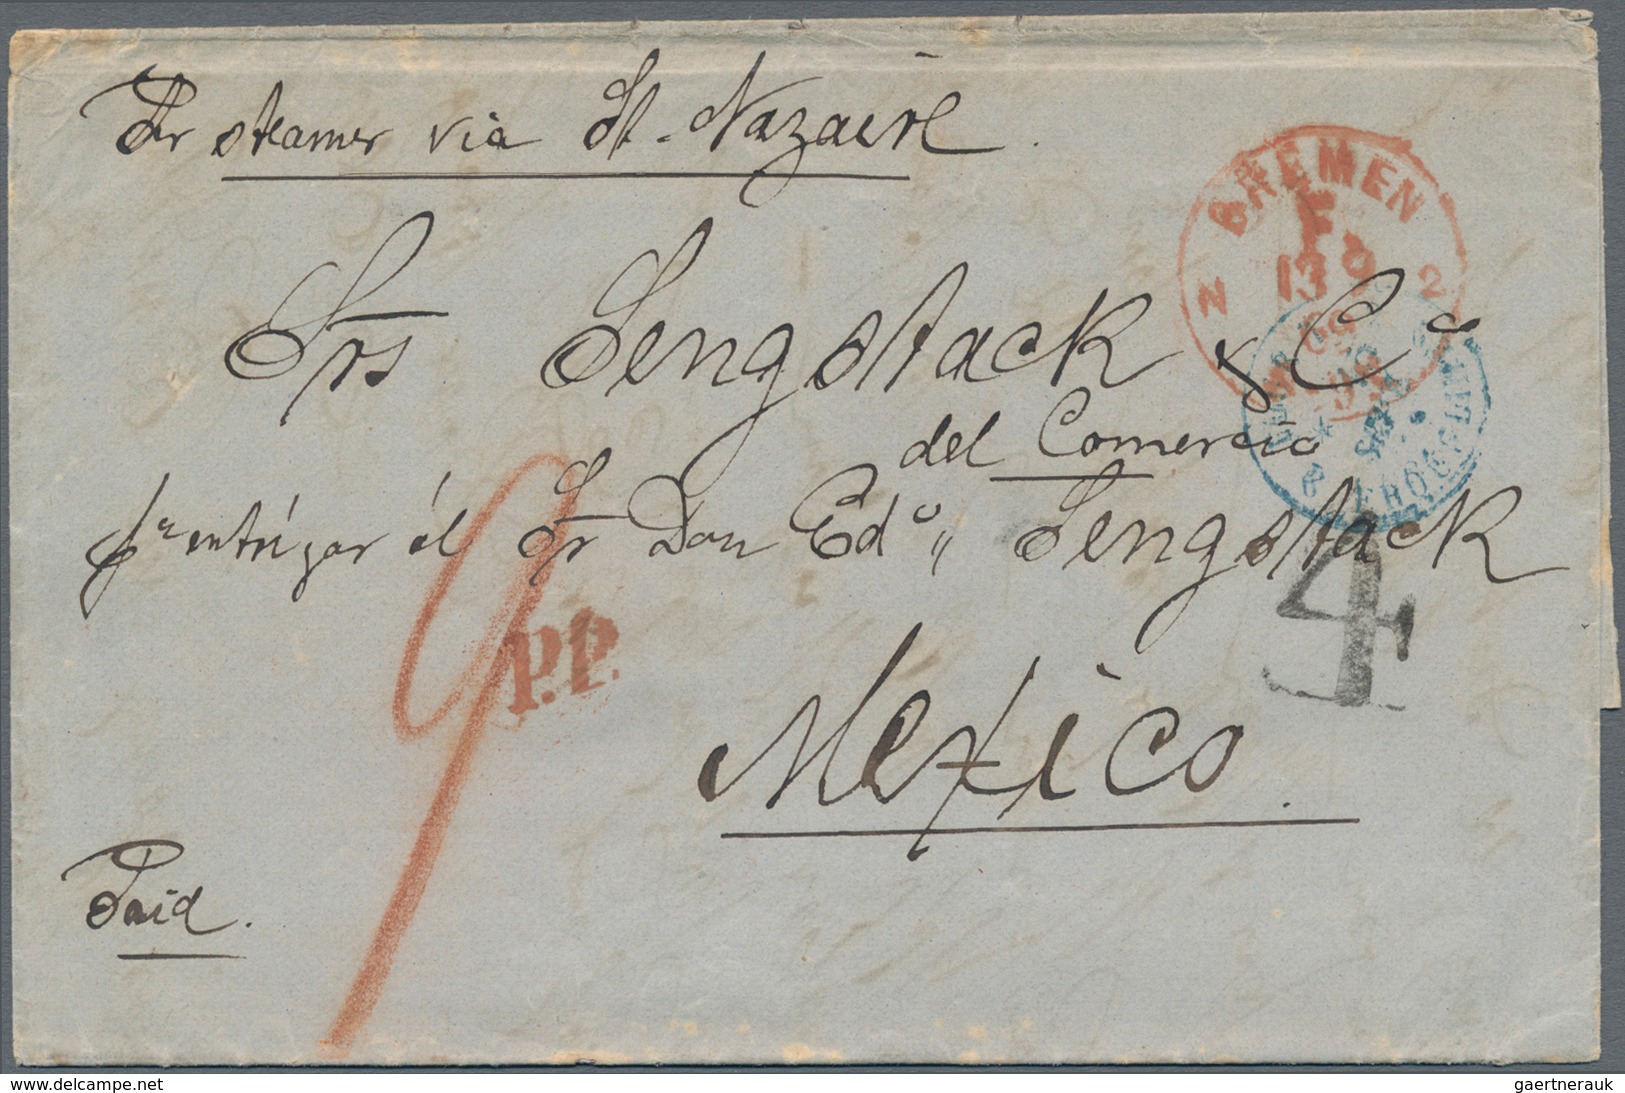 Per steamer via St. Nazaire.
BREMEN
F
13 8
N 2
Srs Sengstack y Ca
del Comercio
pa entrégar ál Sr Don Edo Sengstack
4
P.P.
9
Mexico.
Paid.
www.delcampe.net
gaertnerauk